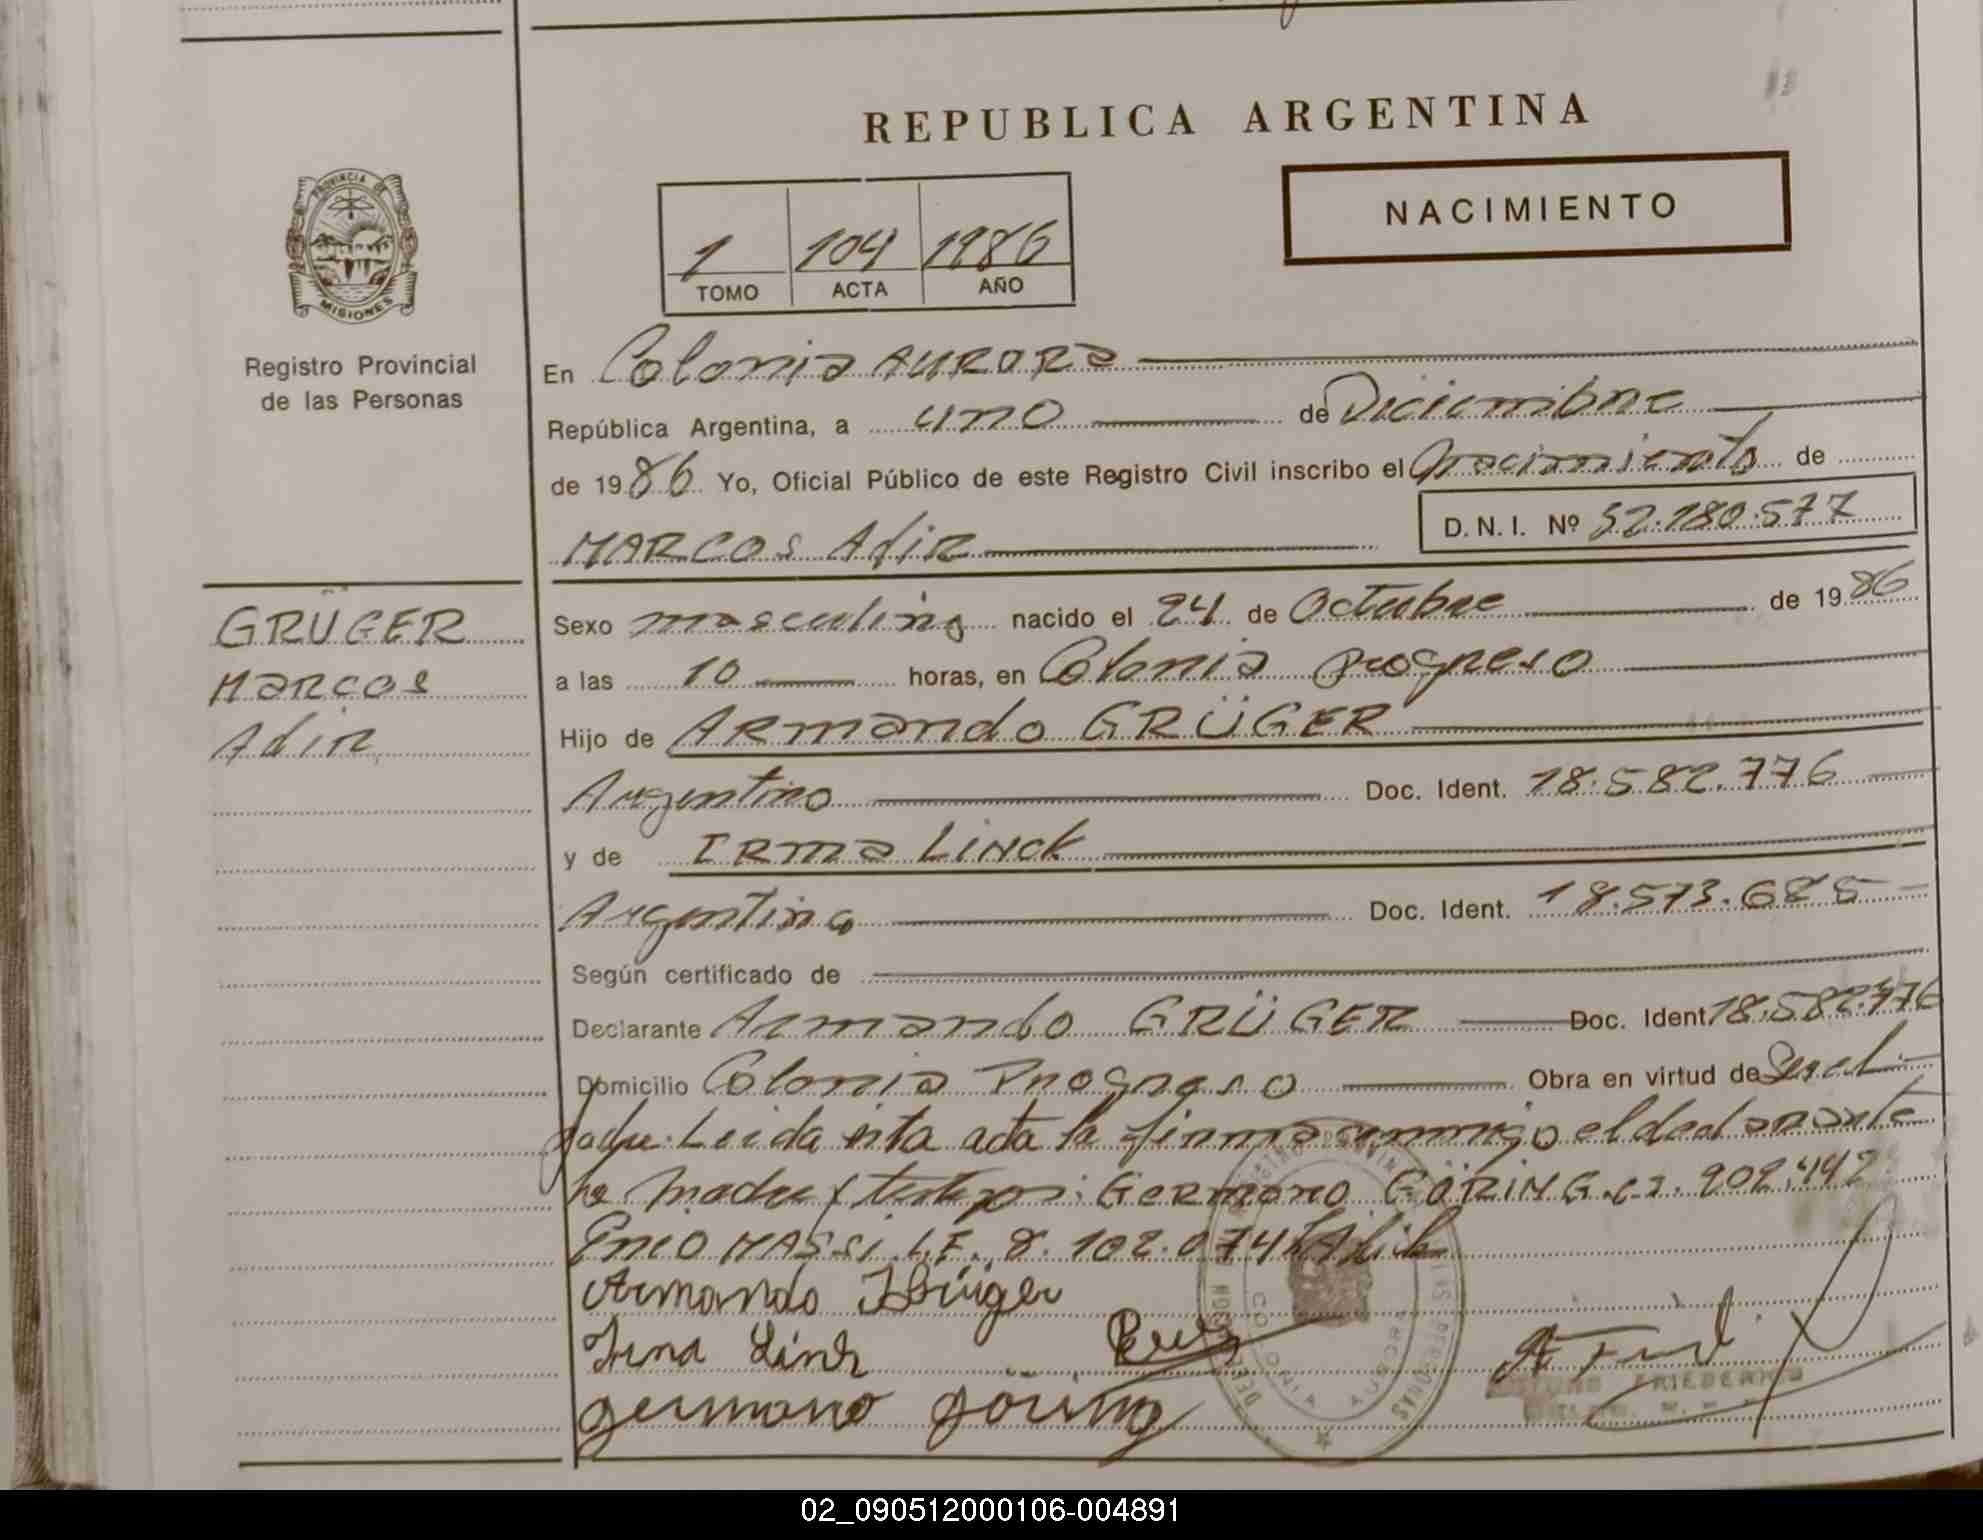 REPUBLICA ARGENTINA
NACIMIENTO
1 104 1986
TOMO ACTA AÑO
PROVINCIA DE
MISIONES
Registro Provincial
de las Personas
En Colonia AURORA
República Argentina, a uno de Diciembre
de 1986 Yo, Oficial Público de este Registro Civil inscribo el Nacimiento de
MARCOS Adir D.N.I. Nº 32.180.577
GRÜGER
Marcos
Adir
Sexo masculino nacido el 24 de Octubre de 1986
a las 10 horas, en Colonia Progreso
Hijo de ARmando GRÜGER
Argentino Doc. Ident. 18.582.776
y de IRma Linck
Argentina Doc. Ident. 18.573.685
Según certificado de
Declarante Armando GRÜGER Doc. Ident. 18.582.776
Domicilio Colonia Progreso Obra en virtud de Ser el
padre. Leida esta acta la firma conmigo el declarante
la madre y testigos: Germano GÖRING C.I. 202.442
Enio MASSi L.E. 8.102.074
Armando Grüger
Irma Linck
germano göring
COLONIA AURORA
FRIEDERICH
02_090512000106-004891